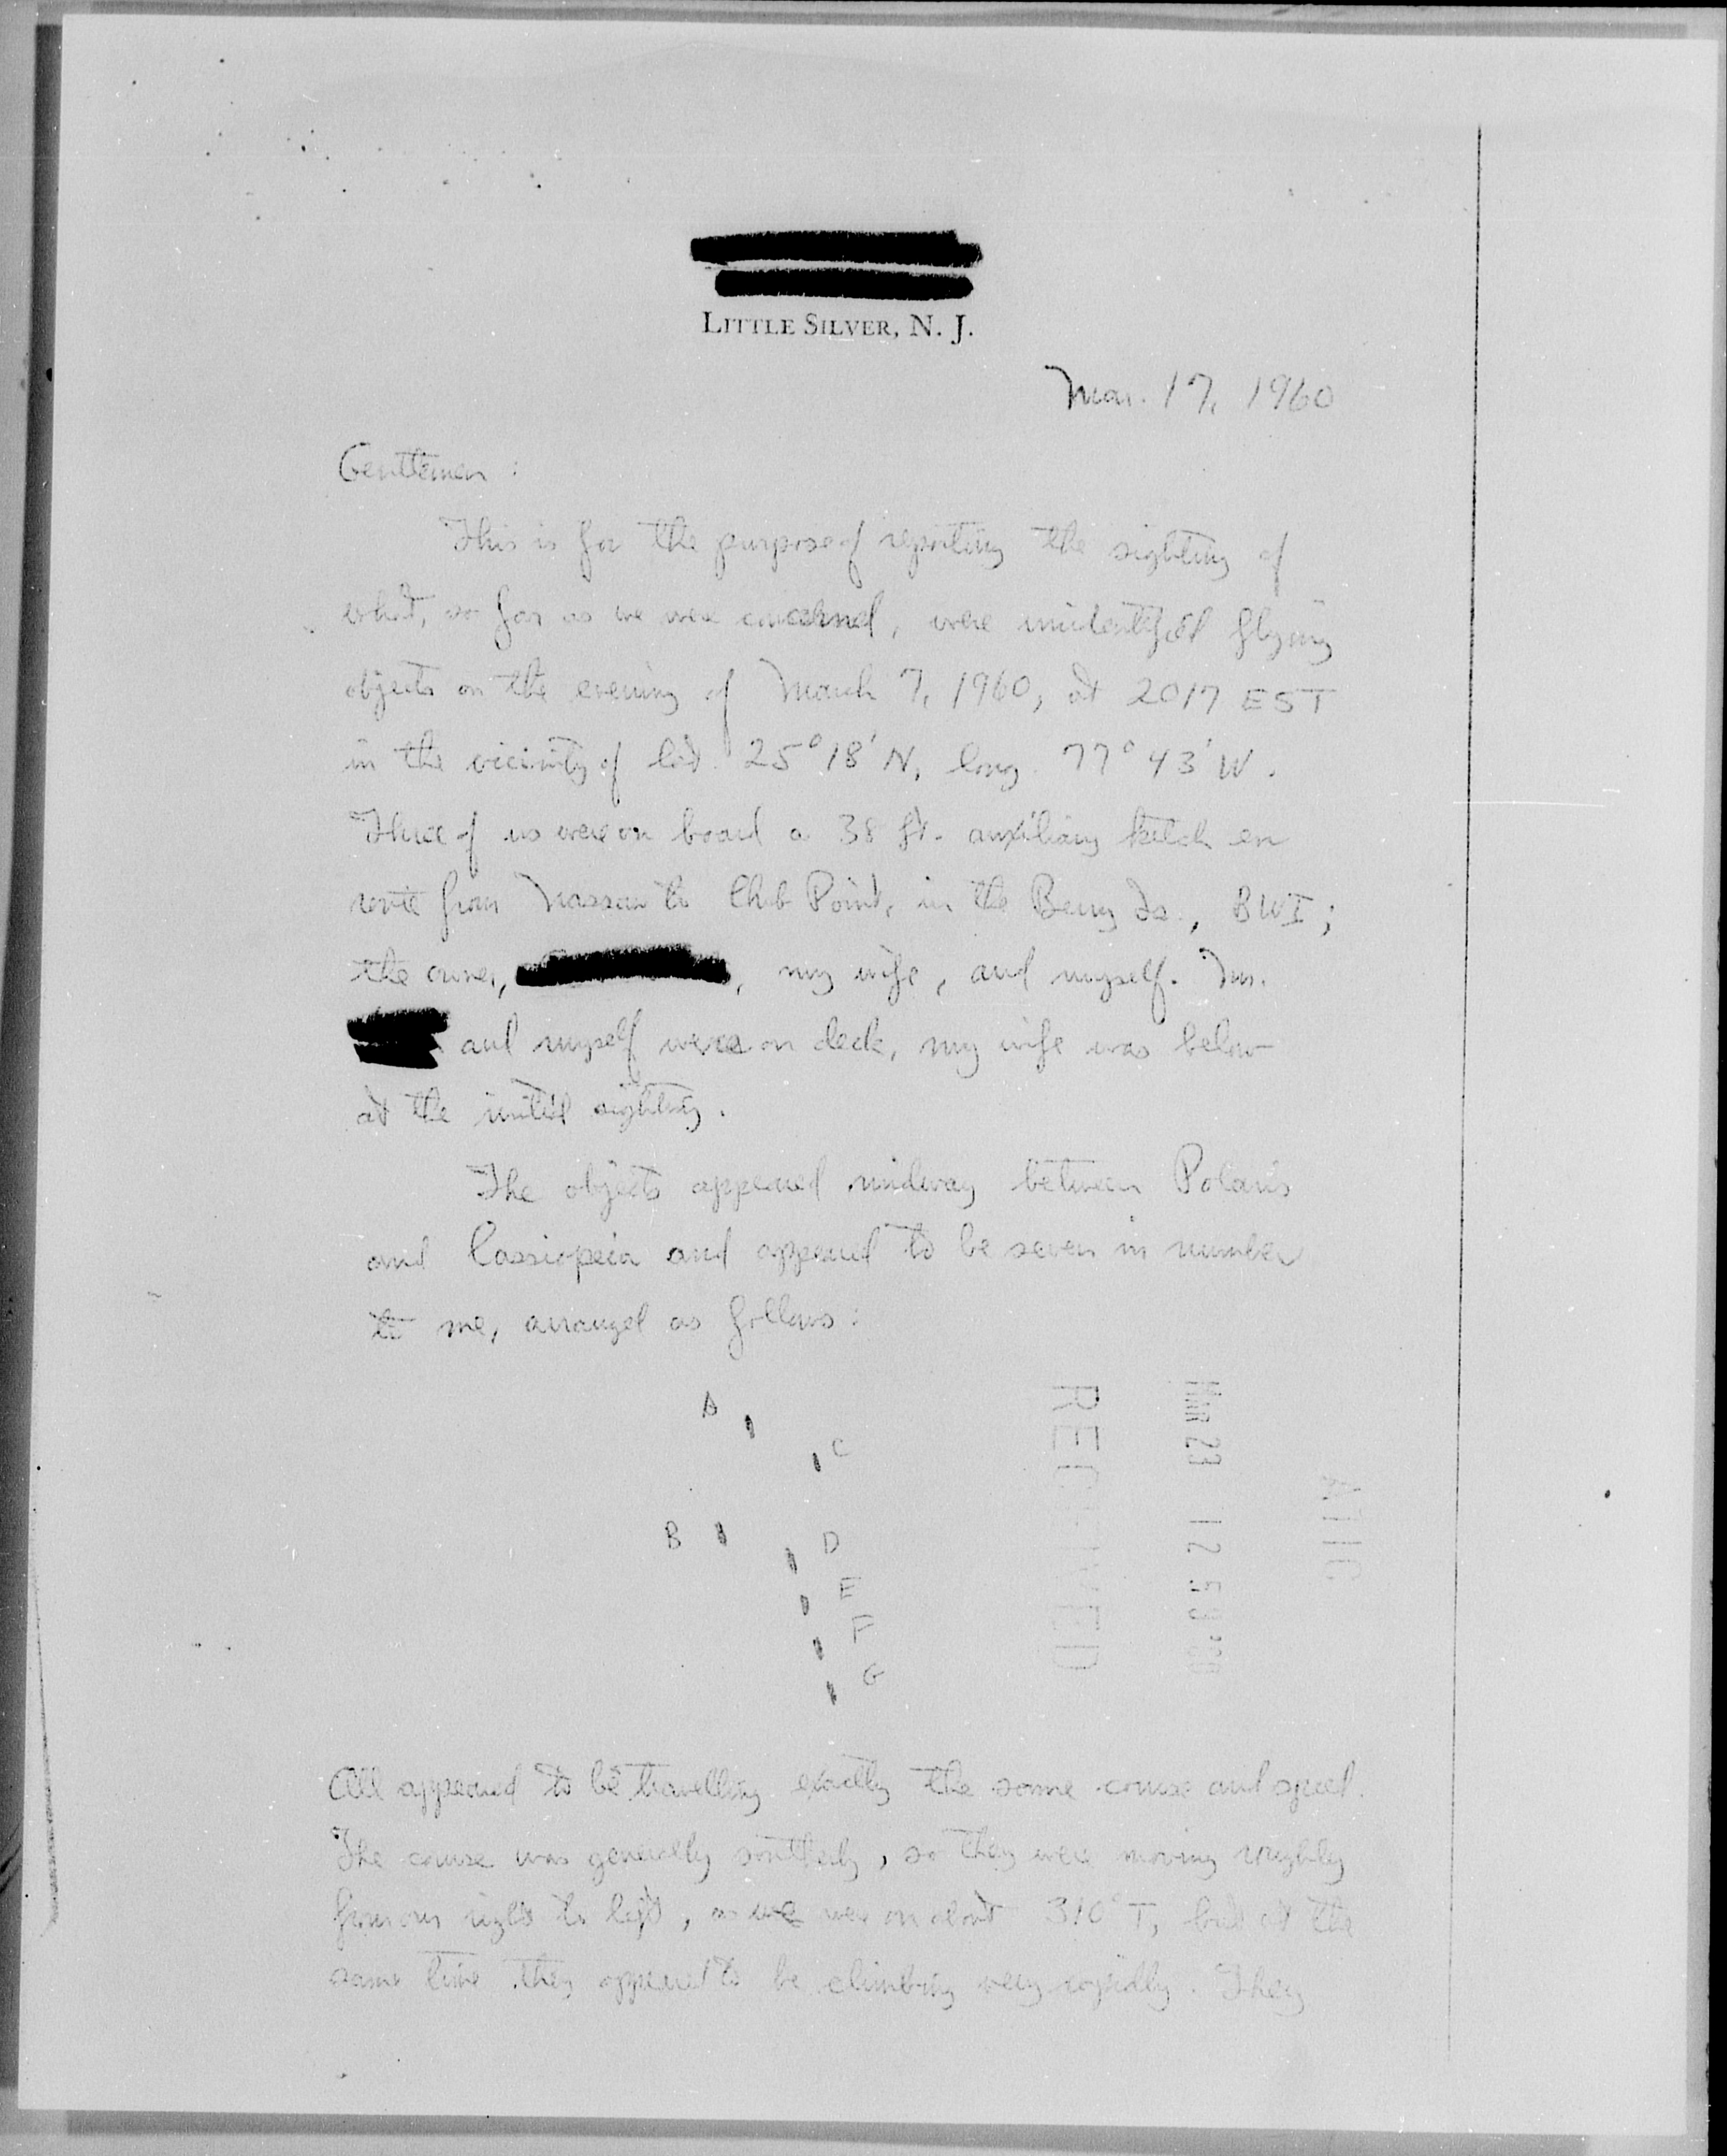 LITTLE SILVER, N. J.
Mar. 17, 1960
Gentlemen :
This is for the purpose of reporting the sighting of
what, so far as we were concerned, were unidentified flying
objects on the evening of March 7, 1960, at 2017 EST
in the vicinity of lat. 25°18' N, long. 77° 43' W.
Three of us were on board a 38 ft. auxiliary ketch en
route from Nassau to Chub Point, in the Berry Is., BWI;
the owner, , my wife, and myself. Mr.
and myself were on deck, my wife was below
at the initial sighting.
The objects appeared midway between Polaris
and Cassiopeia and appeared to be seven in number
to me, arranged as follows:
A
C
B
D
E
F
G
RECEIVED
MAR 23 12 58 '60
ATIC
All appeared to be travelling exactly the same course and speed.
The course was generally southerly, so they were moving roughly
from our right to left, as we were on about 310° T, but at the
same time they appeared to be climbing very rapidly. They